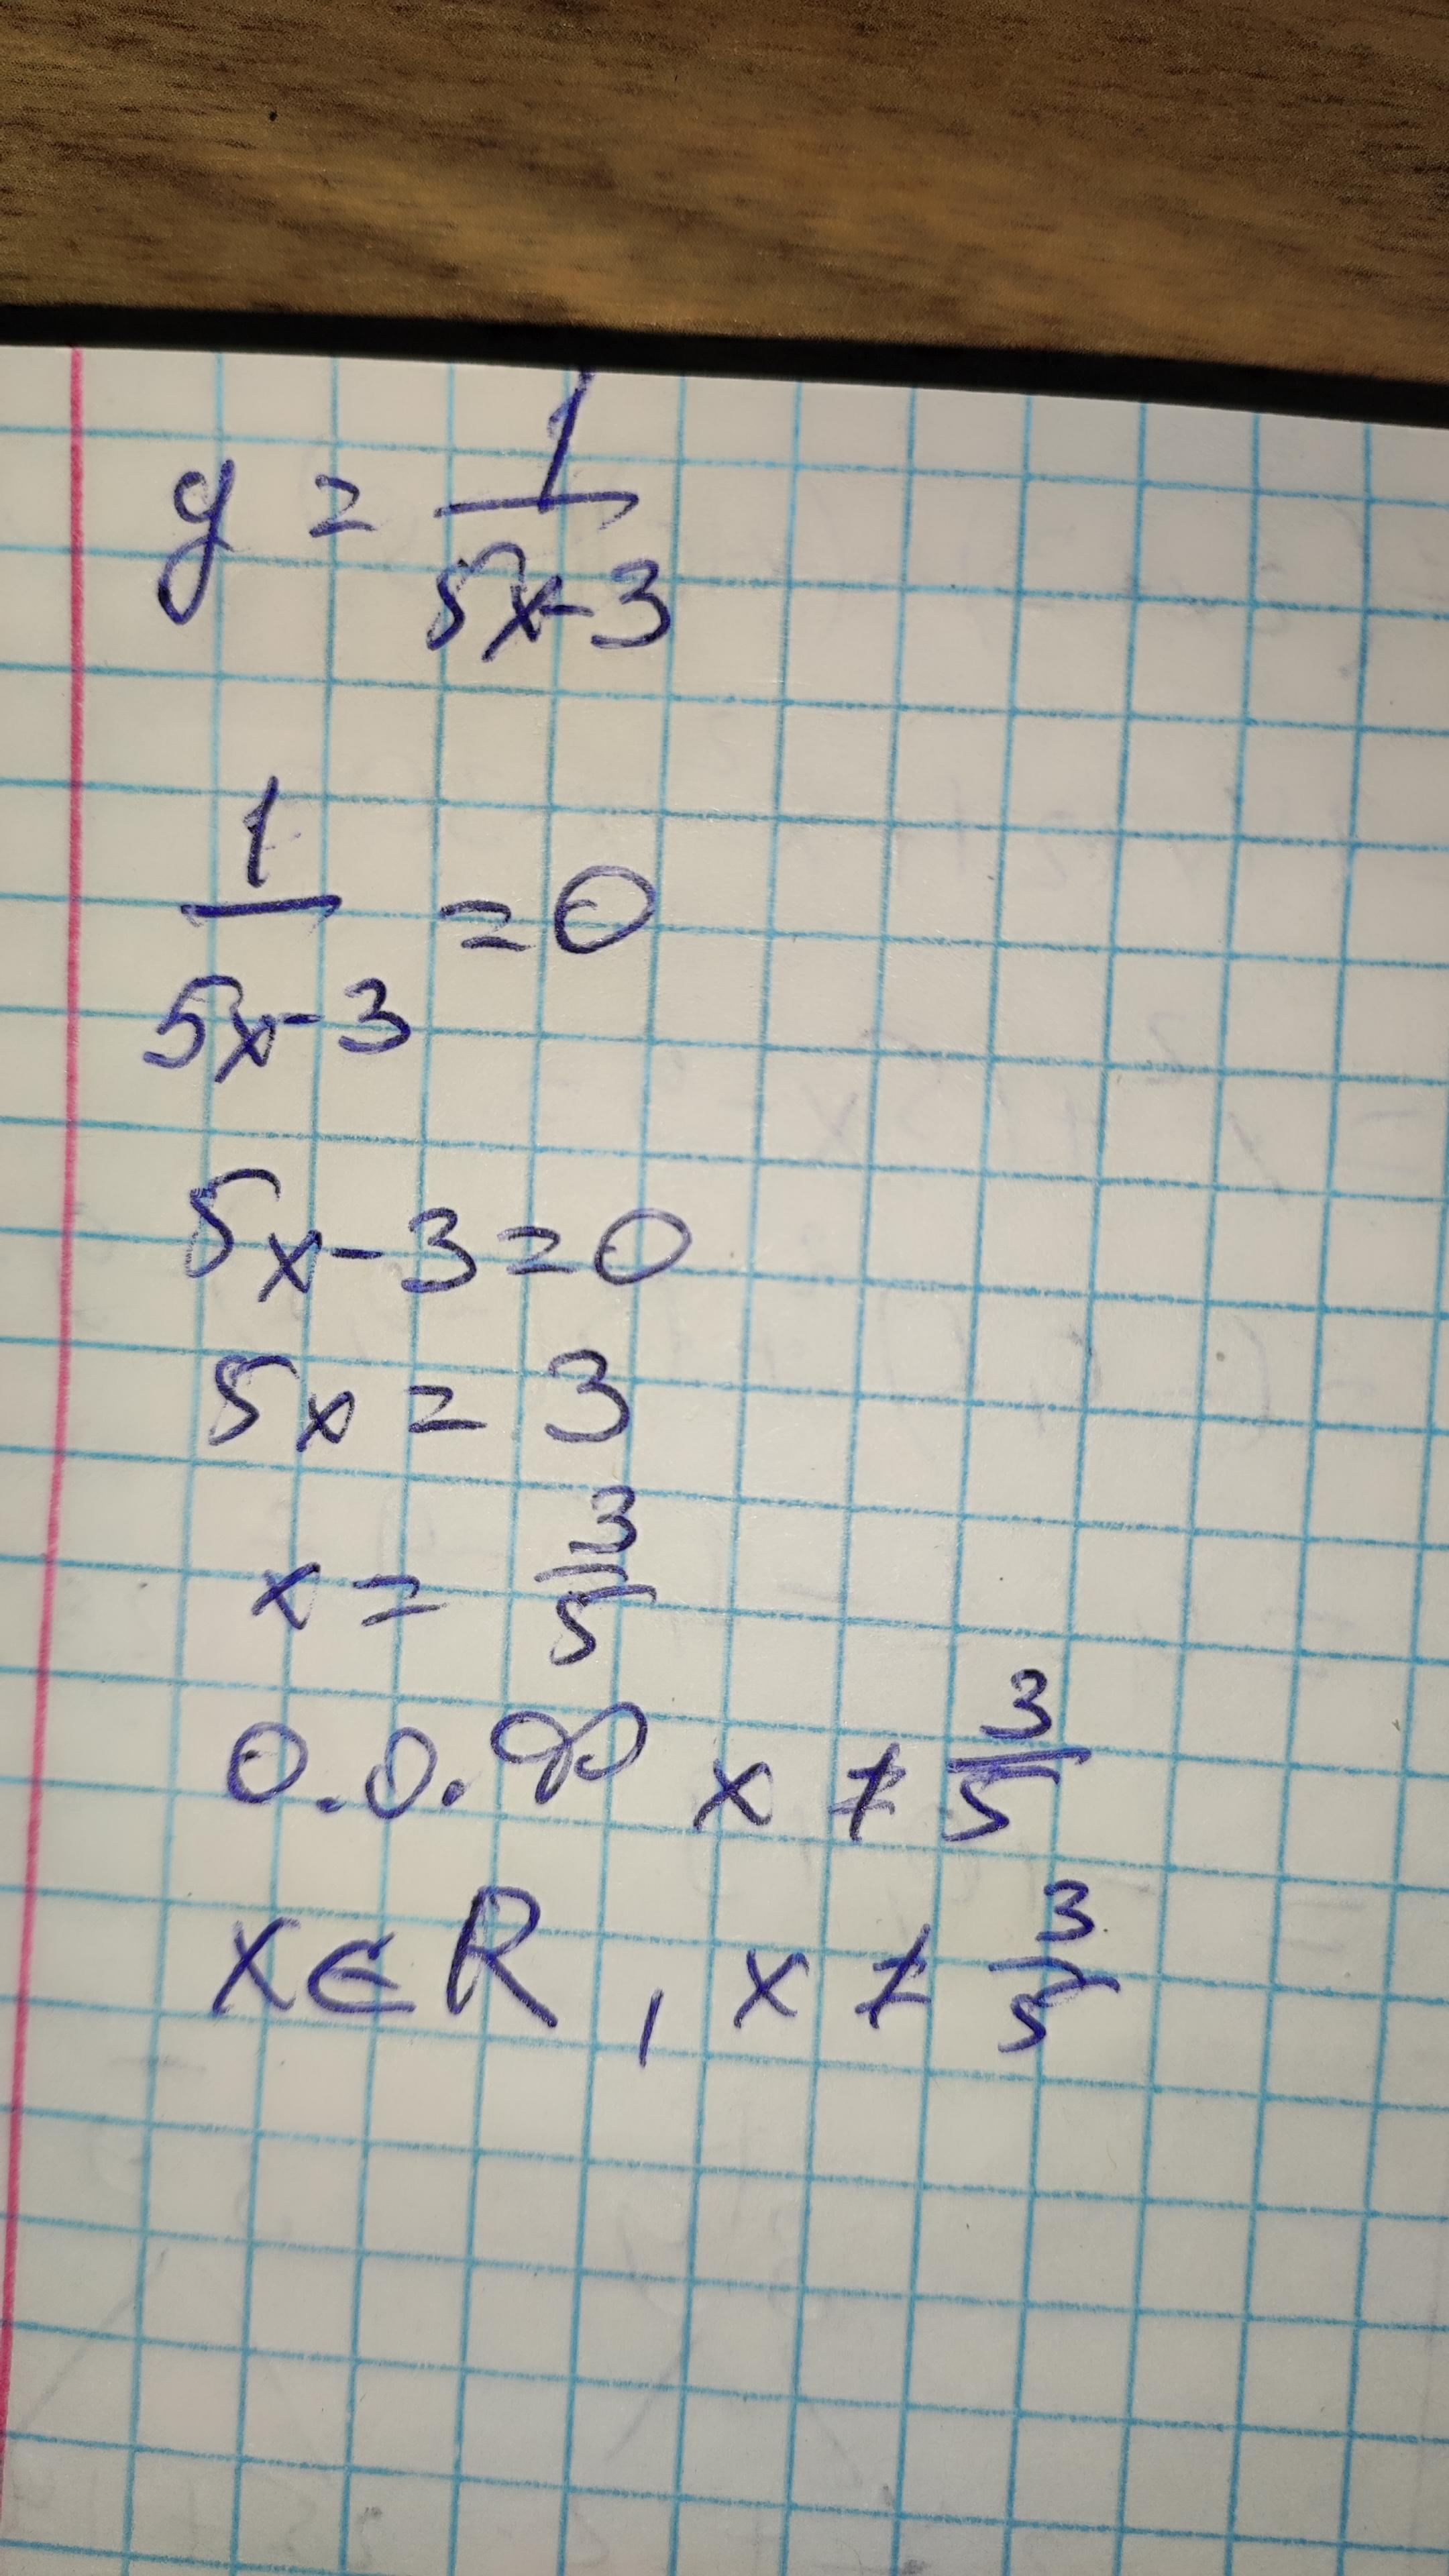 y = 1/(5x-3)
1/(5x-3) = 0
5x-3=0
5x = 3
x = 3/5
О.О.Ф x ≠ 3/5
x∈R, x ≠ 3/5